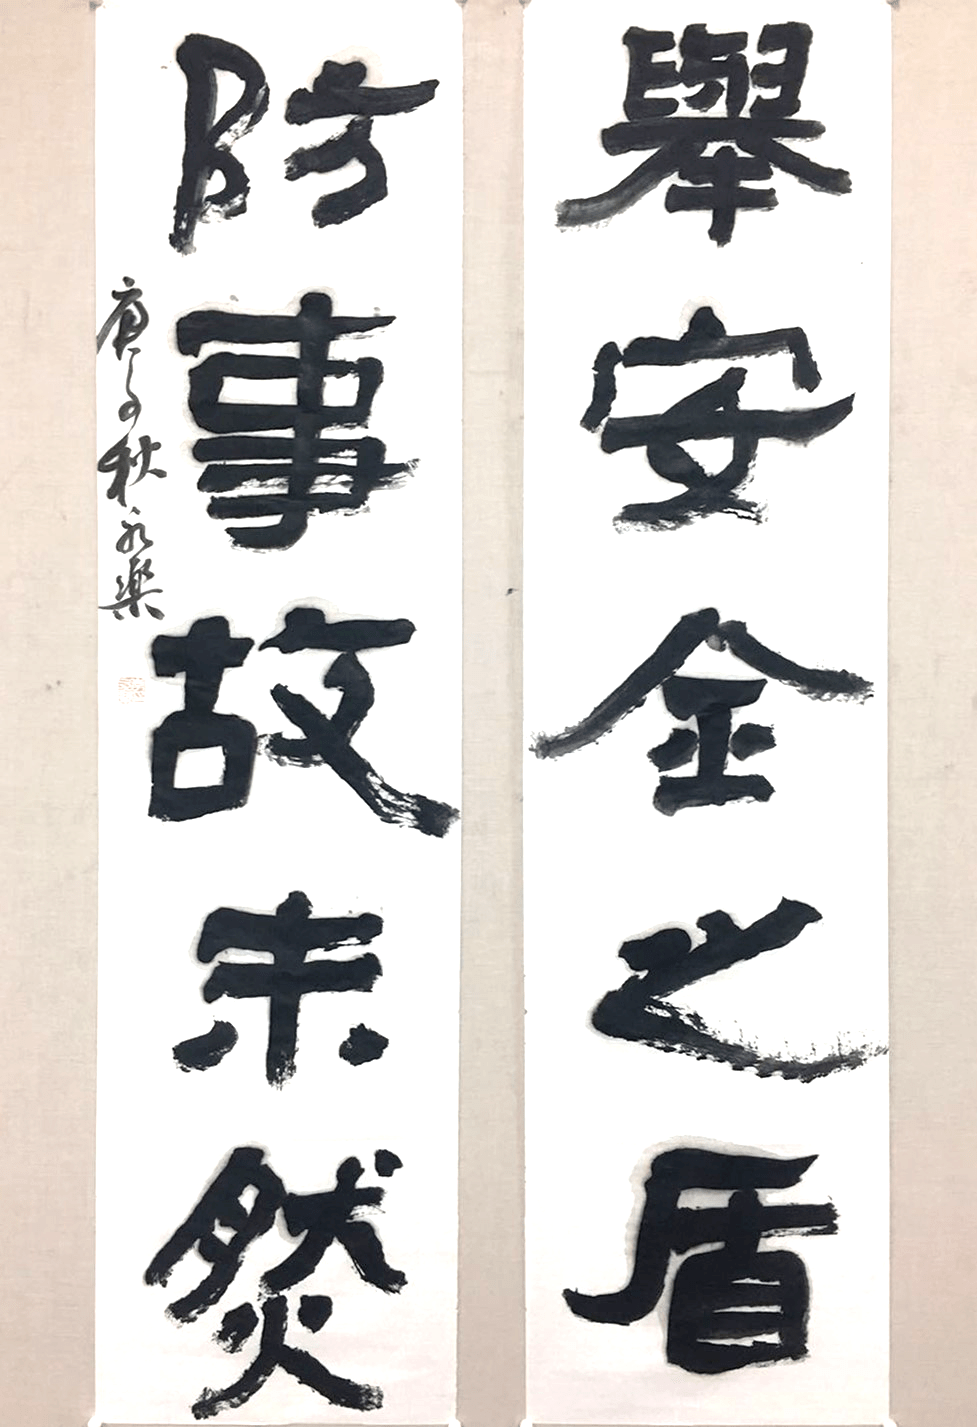 舉安全之盾
防事故未然
庚子秋永樂